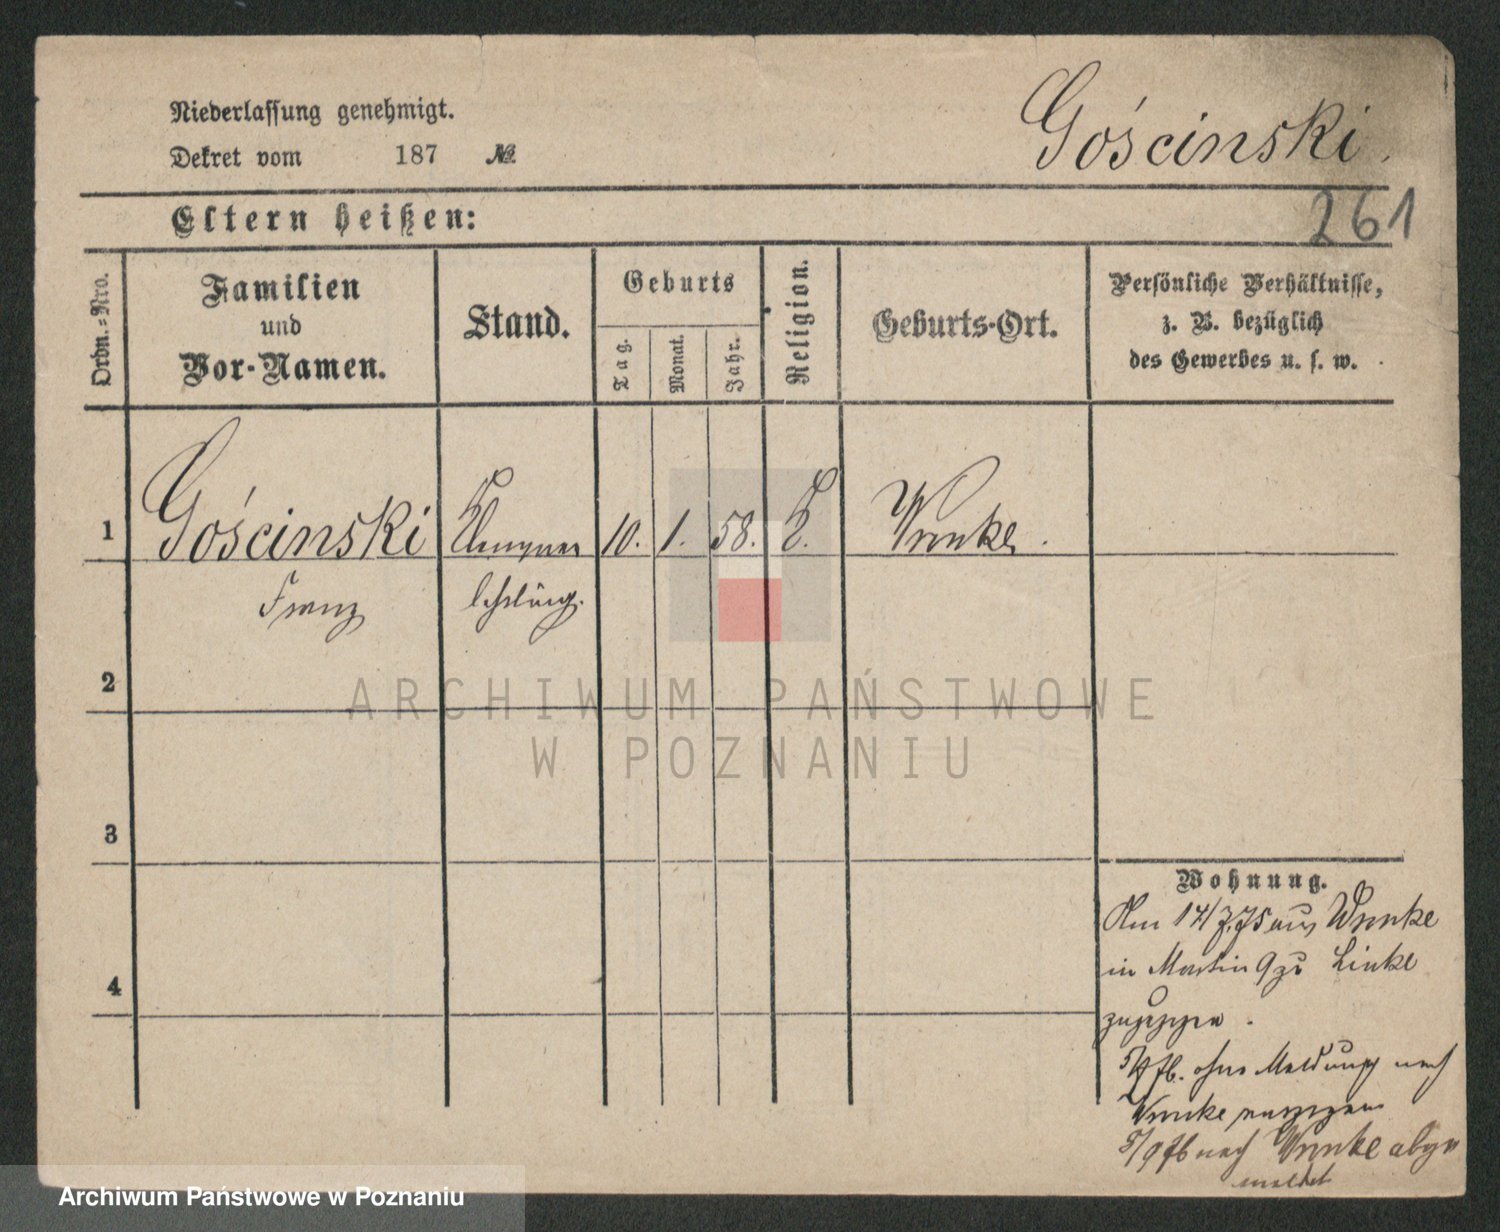 Niederlassung genehmigt.
Dekret vom 187 №
Gościnski.
Eltern heißen:
261
Ordn.-Nro.
Familien
und
Vor-Namen.
Stand.
Geburts
Tag.
Monat.
Jahr.
Religion.
Geburts-Ort.
Persönliche Verhältnisse,
z. B. bezüglich
des Gewerbes u. s. w.
1 Gościnski Klempner 10. 1. 58. K. Wronke.
Franz lehrling.
2
3
4
Wohnung.
Am 14/7.75 aus Wronke
in Martin 9 zu Linke
zugezogen.
ohne Meldung nach
Wronke
nach Wronke abge
meldet
ARCHIWUM PAŃSTWOWE
W POZNANIU
Archiwum Państwowe w Poznaniu